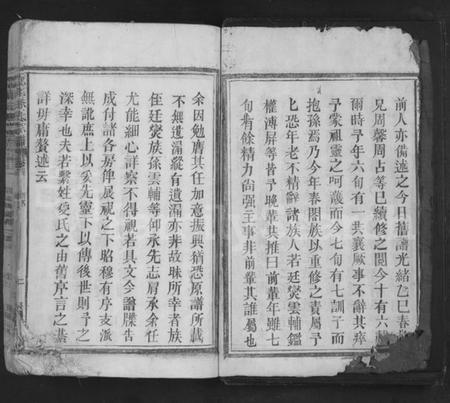 前人亦備述之今日舊譜光緒乙巳春
兄周馨周占等已續修之閱今十有六
爾時予年六旬有一共襄厥事不辭其瘁
予蒙祖靈之呵護而今七旬有七訓丁而
抱孫焉乃今年春閤族以重修之責屬予
匕恐年老不精辭諸族人若廷燮雲輔鑑
權溥屏等昔予晚輩共推曰前輩年雖七
旬有餘精力尚强主事非前輩其誰屬也
余因勉膺其任加意振興猶恐原譜所載
不無遺漏縱有遺漏亦非故昧所幸者族
侄廷燮族孫雲輔等仰承先志肩承余任
尤能細心詳察不得視若具文今譜牒告
成付諸各房俾展視之下昭穆有序支派
無訛庶上以妥先靈下以傳後世則予之
深幸也夫若繫姓受氏之由舊序言之綦
詳毋庸贅述云